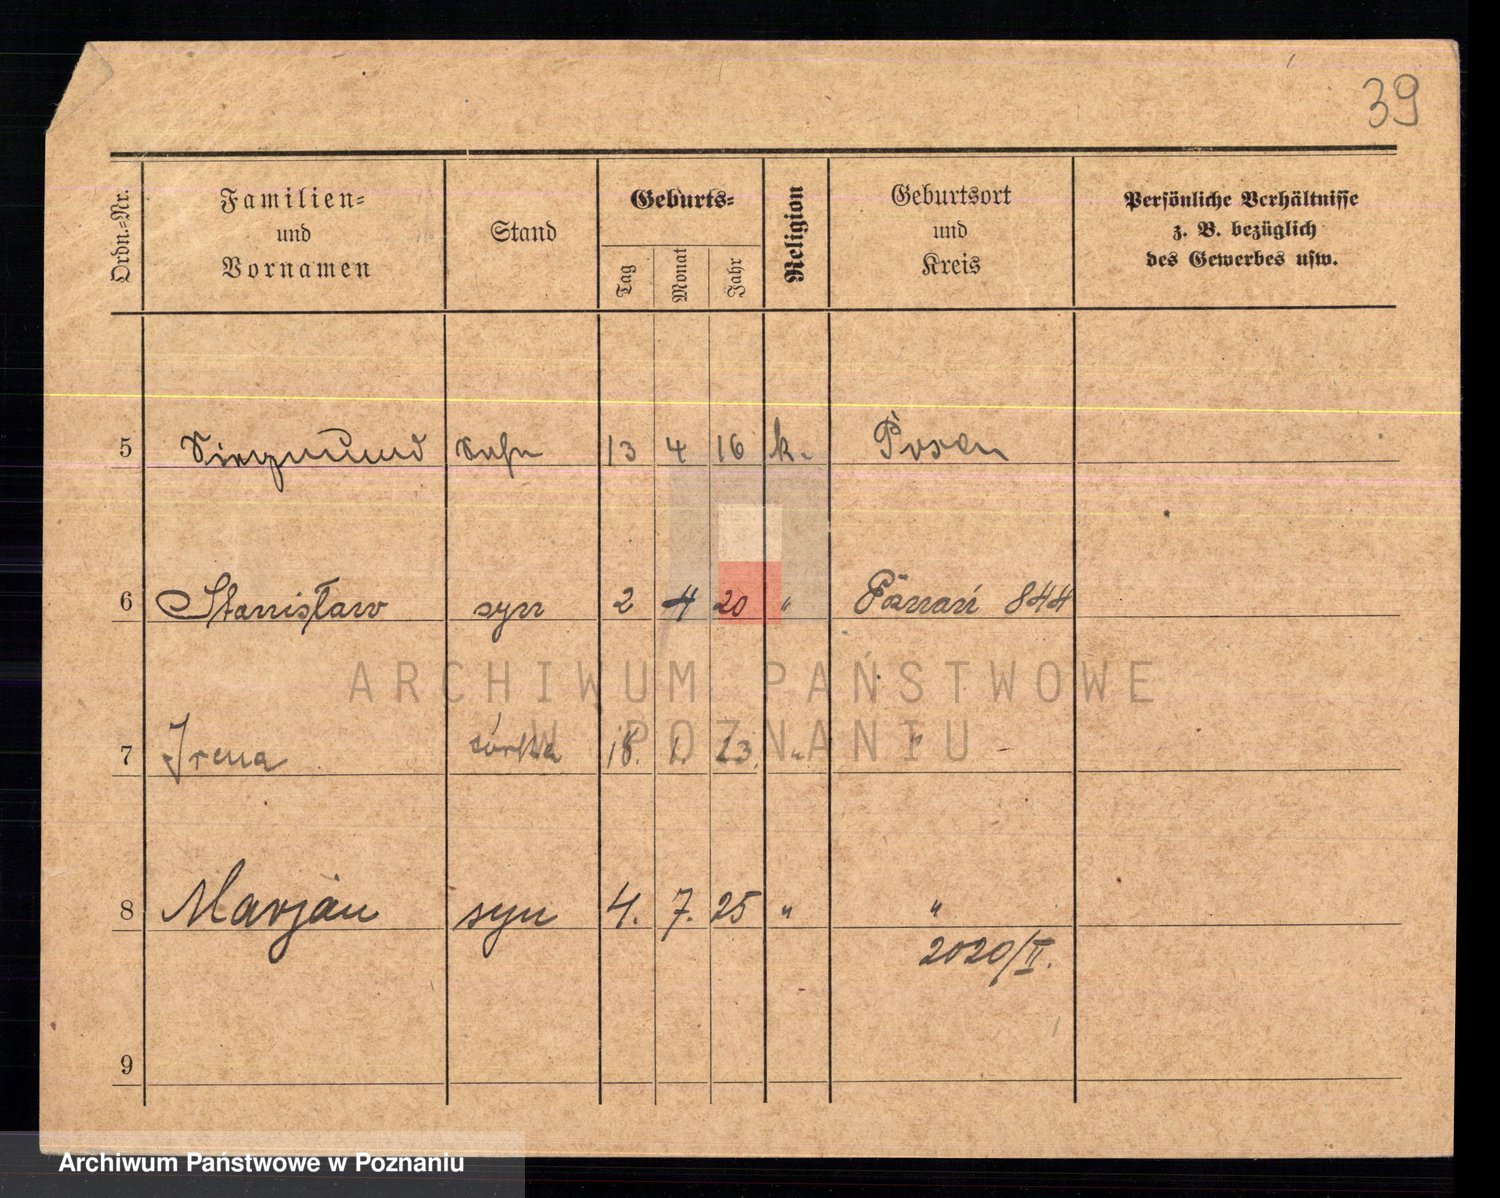 39
Ordn.=Nr. Familien= und Vornamen Stand Geburts= Tag Monat Jahr Religion Geburtsort und Kreis Persönliche Verhältnisse z. B. bezüglich des Gewerbes usw.
5 Siegmund Sohn 13 4 16 k. Posen
6 Stanisław syn 2 4 20 " Poznań 844
ARCHIWUM PAŃSTWOWE
W POZNANIU
7 Irena córka 18. 1. 23. " "
8 Marjan syn 4. 7. 25 " "
2020/II.
9
Archiwum Państwowe w Poznaniu